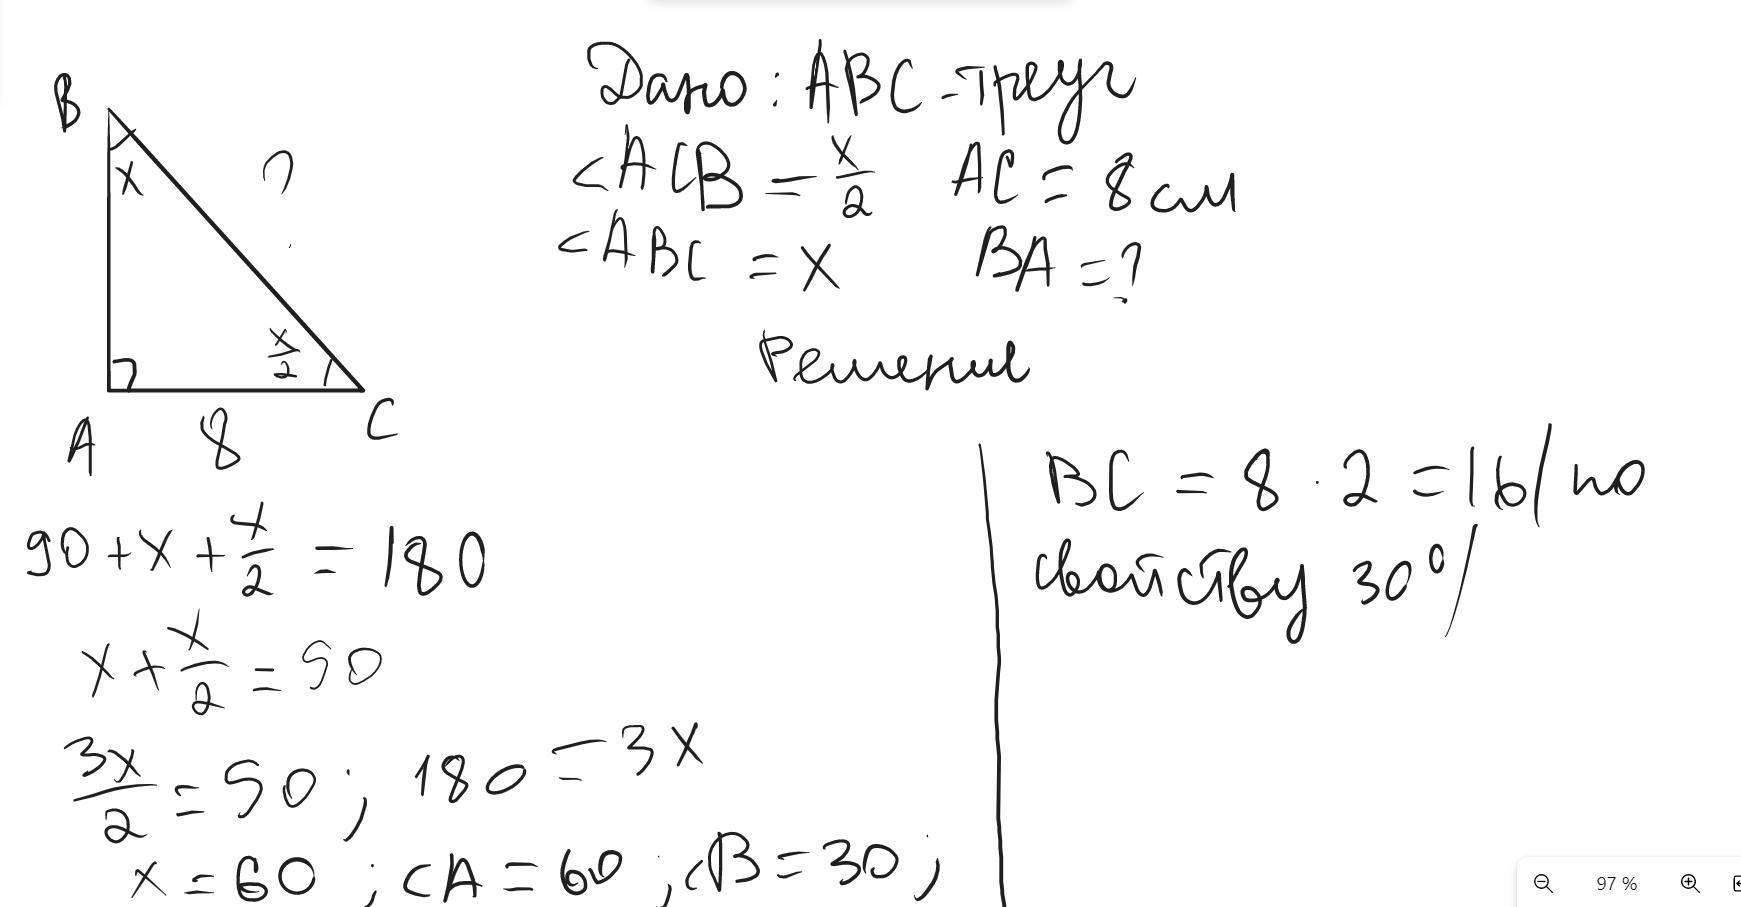 Дано: ABC - треуг
∠ACB = x/2 AC = 8 см
∠ABC = x BA = ?
Решение
B
x
?
x/2
A 8 C
90 + x + x/2 = 180
x + x/2 = 90
3x/2 = 90; 180 = 3x
x = 60; ∠A = 60; ∠B = 30;
BC = 8 · 2 = 16 / по
свойству 30° /
97 %